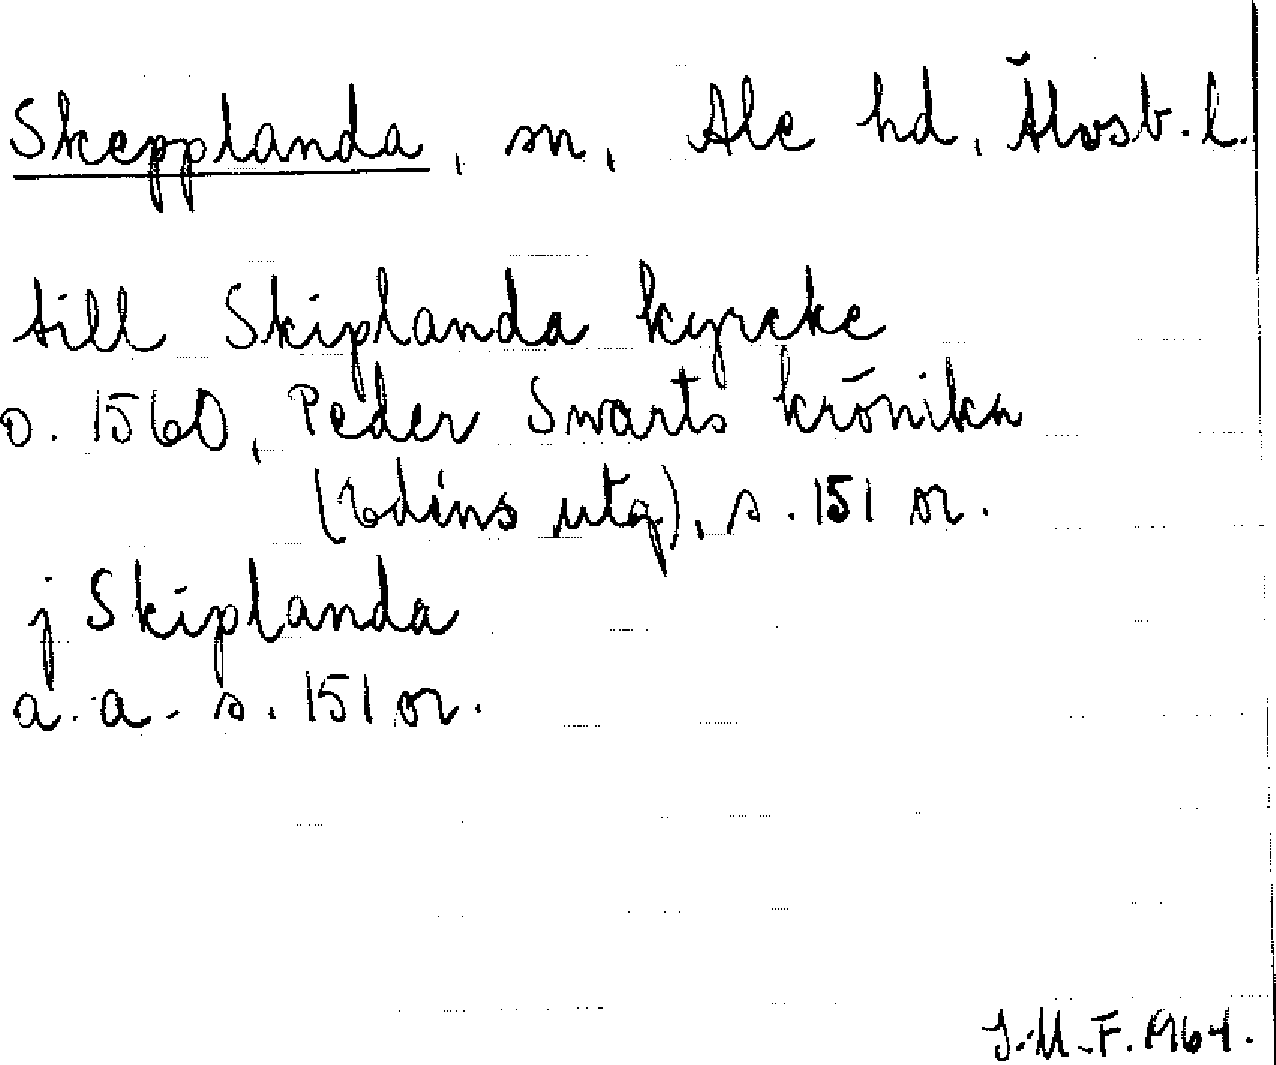 Skepplanda, sn, Ale hd, Älvsb. l.
till Skiplanda kyrcke
o. 1560, Peder Swarts krönika
(Edéns utg), s. 151 or.
j Skiplanda
a. a. s. 151 or.
J.M.F. 1964.